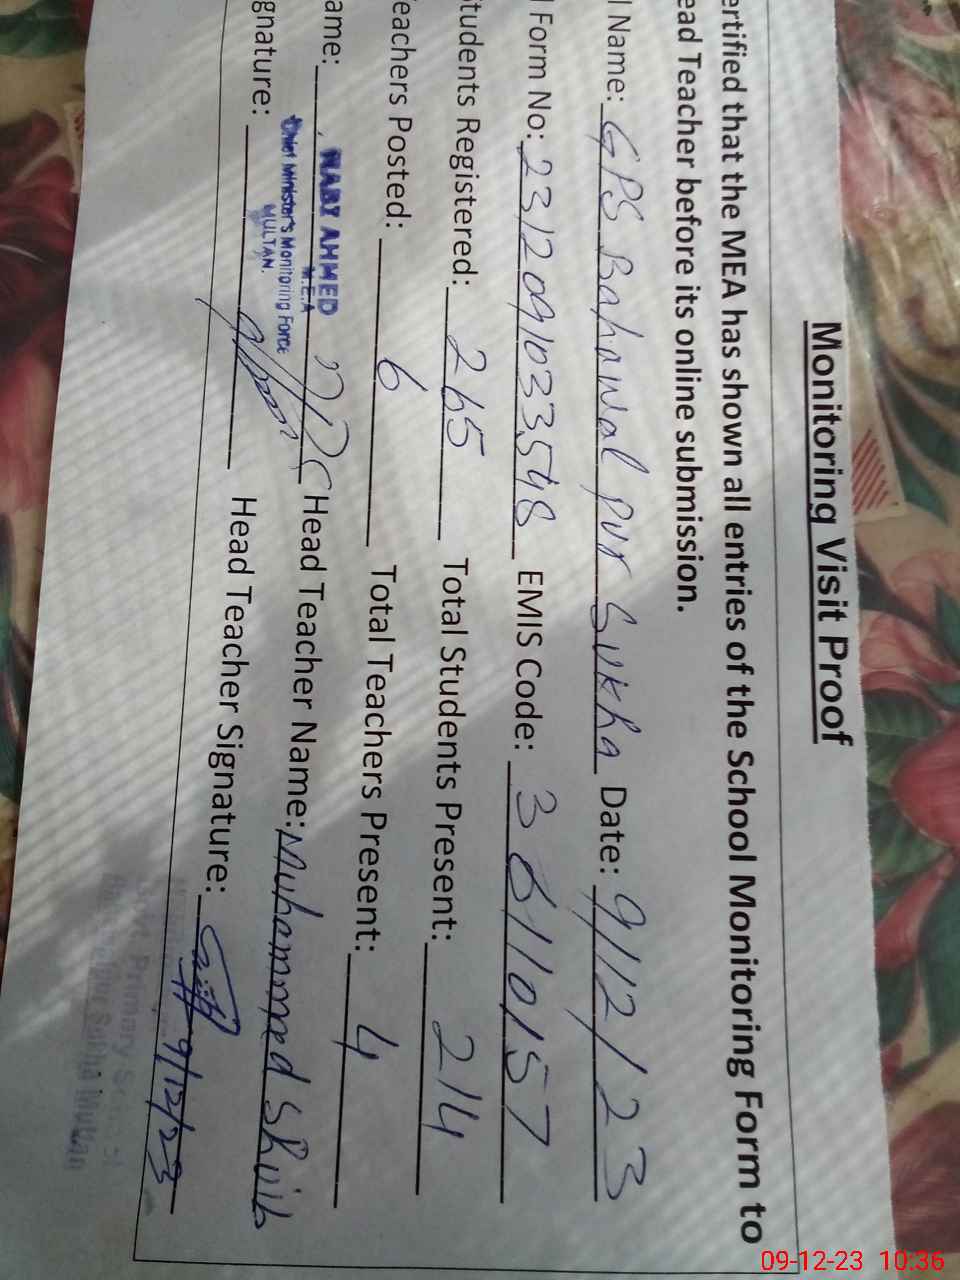 Monitoring Visit Proof
ertified that the MEA has shown all entries of the School Monitoring Form to
ead Teacher before its online submission.
l Name: GPS Bahawal pur Sukha Date: 9/12/23
l Form No: 2312091033548 EMIS Code: 36110157
Students Registered: 265 Total Students Present: 214
eachers Posted: 6 Total Teachers Present: 4
ame: NABY AHMED Head Teacher Name: Muhammad Shuib
M.E.A
Chief Minister's Monitoring Force
MULTAN.
gnature: Head Teacher Signature: 9/12/23
Primary School
Multan
09-12-23 10:36